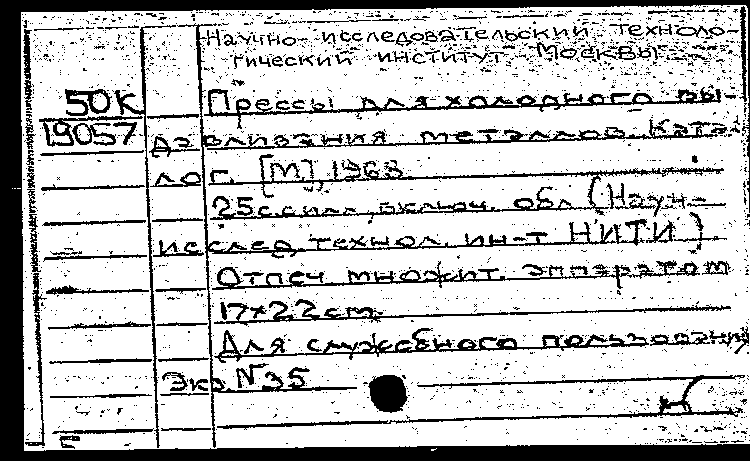 Научно-исследовательский техноло-
гический институт Москвы
50К Прессы для холодного вы-
19057 давливания металлов. Ката-
лог. [М.], 1968.
25с. с илл., включ. обл (Науч-
исслед. технол. ин-т НИТИ)
Отпеч множит. аппаратом
17х22см.
Для служебного пользования
Экз. №35